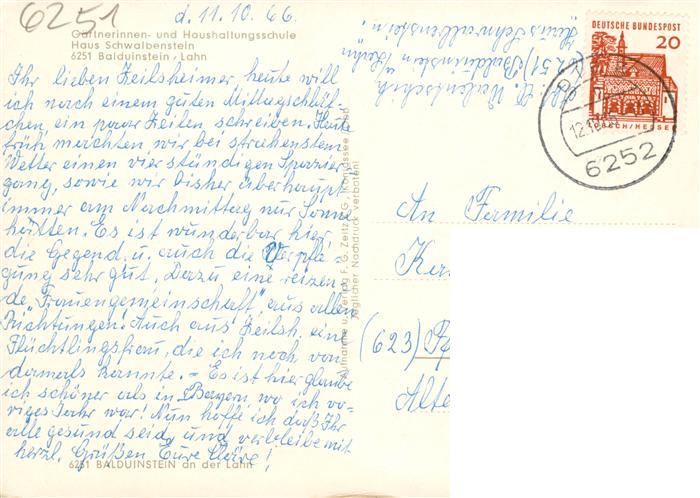 6251
d. 11. 10. 66.
Gärtnerinnen- und Haushaltungsschule
Haus Schwalbenstein
6251 Balduinstein / Lahn
Ihr lieben Zeilsheimer heute will
ich nach einem guten Mittagsschläf-
chen ein paar Zeilen schreiben. Heute
früh machten wir bei strahlendem
Wetter einen vierstündigen Spazier-
gang, sowie wir bisher überhaupt
immer am Nachmittag nur Sonne
hatten. Es ist wunderbar hier,
die Gegend u. auch die Verpfle-
gung sehr gut. Dazu eine reizen-
de „Frauengemeinschaft" aus allen
Richtungen. Auch aus Zeilsh. eine
Flüchtlingsfrau, die ich noch von
damals kannte. - Es ist hier glaube
ich schöner als in Bayern wo ich vo-
riges Jahr war! Nun hoffe ich daß Ihr
alle gesund seid, und verbleibe mit
herzl. Grüßen Eure
6251 BALDUINSTEIN an der Lahn
Aufnahme u. Verlag F. G. Zeitz K.G., Königssee / Obb.
Jeglicher Nachdruck verboten!
(6251) Balduinstein a. Lahn
„Haus Schwalbenstein"
DEUTSCHE BUNDESPOST
20
LORSCH/HESSEN
6252
An Familie
(623)
Alte